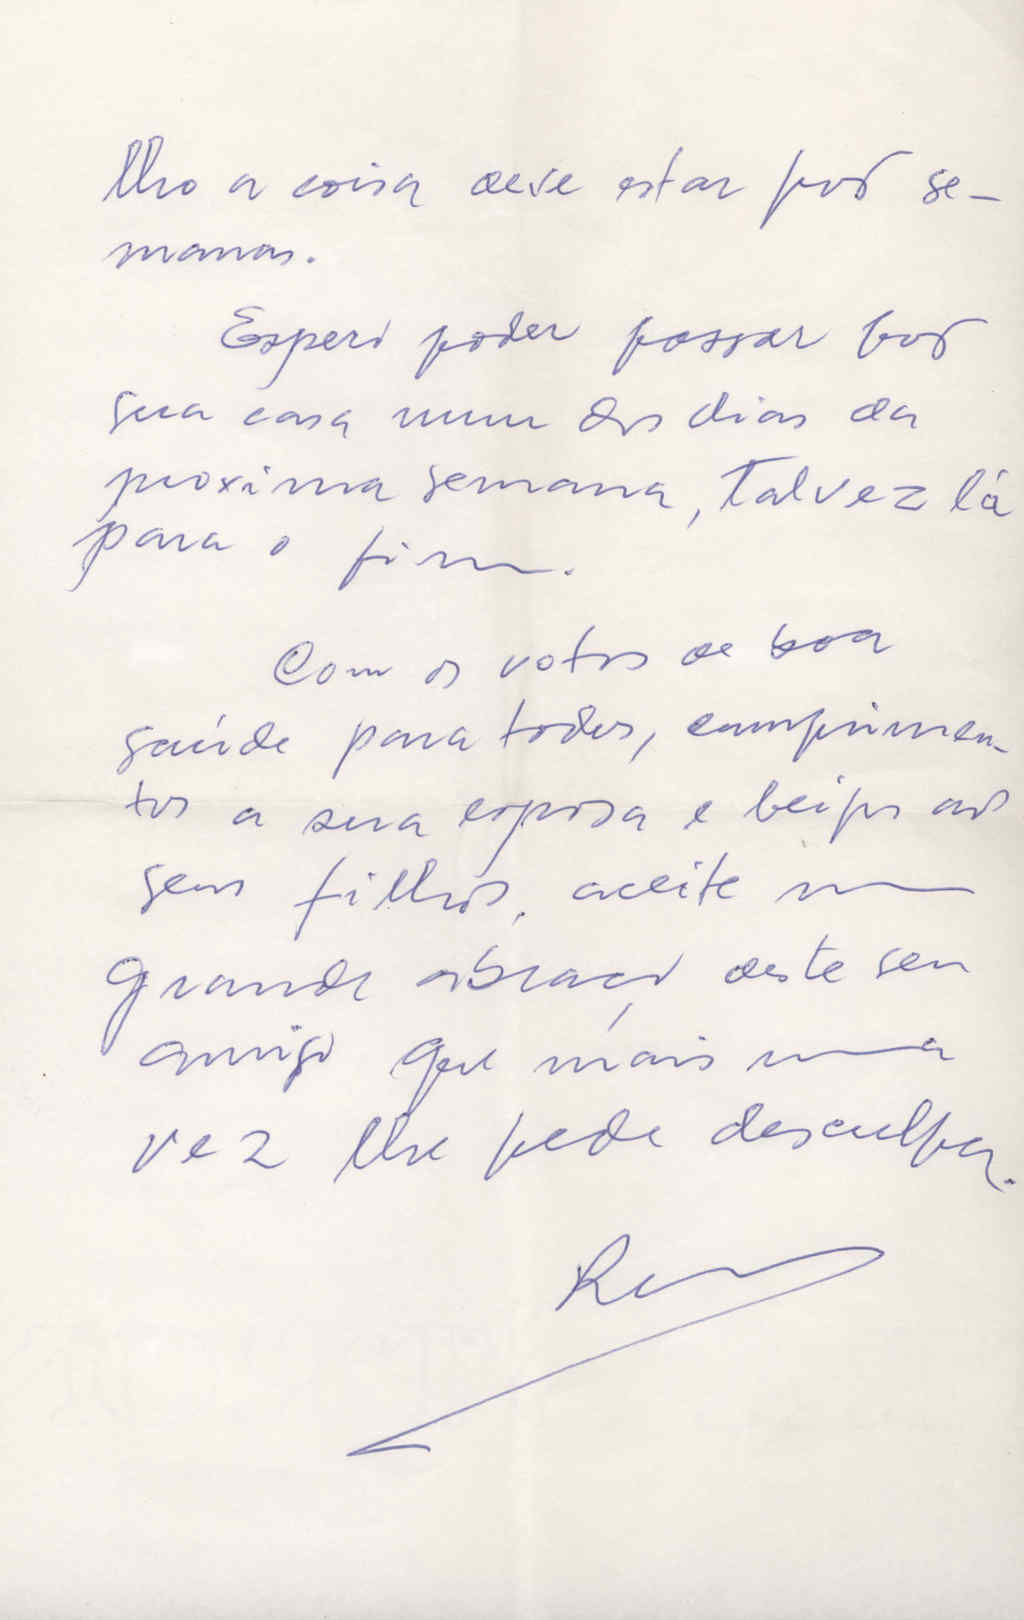 lho a coisa deve estar por se-
manas.
Espero poder passar por
sua casa num dos dias da
proxima semana, talvez lá
para o fim.
Com os votos de boa
saúde para todos, cumprimen-
tos a sua esposa e beijos aos
seus filhos, aceite um
grande abraço deste seu
amigo que mais uma
vez lhe pede desculpa.